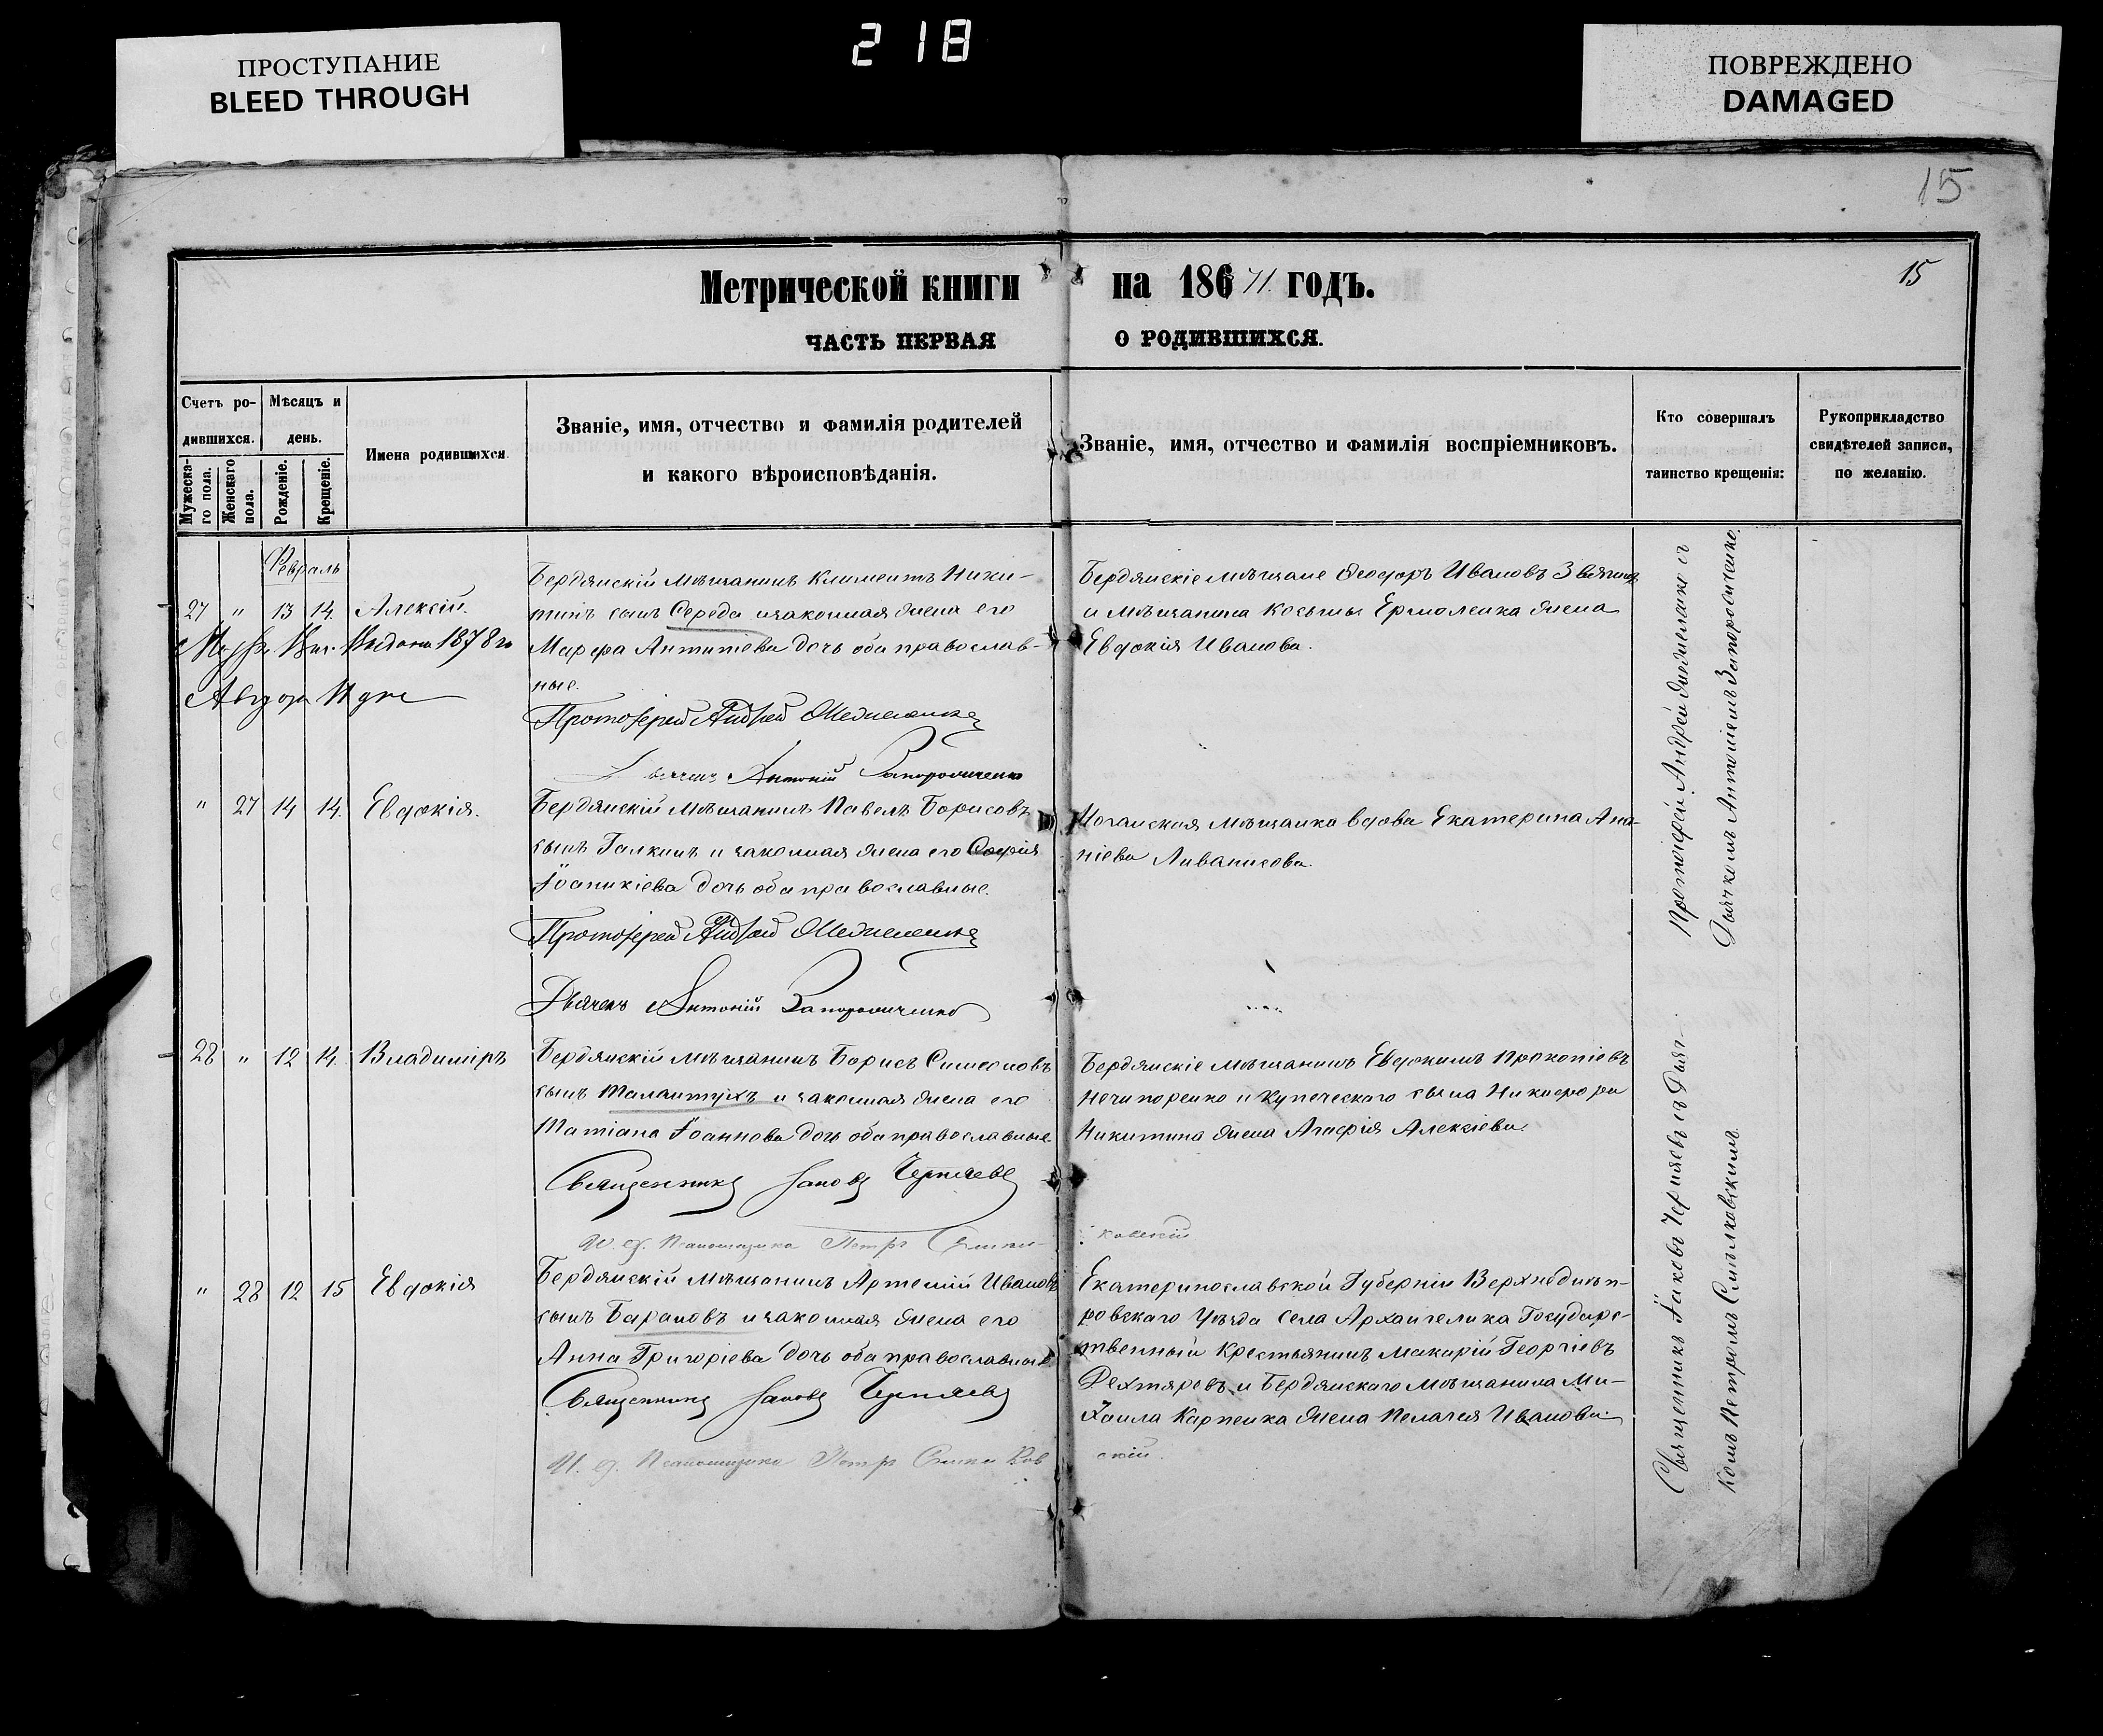 ПРОСТУПАНИЕ
BLEED THROUGH
218
ПОВРЕЖДЕНО
DAMAGED
15
Метрической книги на 18671. годъ.
15
ЧАСТЬ ПЕРВАЯ О РОДИВШИХСЯ.
Счетъ ро-
дившихся.
Мужеска-
го пола.
Женскаго
пола.
Мѣсяцъ и
день.
Рожденіе.
Крещеніе.
Имена родившихся.
Званіе, имя, отчество и фамилія родителей
и какого вѣроисповѣданія.
Званіе, имя, отчество и фамилія воспріемниковъ.
Кто совершалъ
таинство крещенія:
Рукоприкладство
свидѣтелей записи,
по желанію.
Февраль
27 " 13 14. Алексій.
Выдана 1878 го
Бердянскій мѣщанинъ Климентъ Ники-
тинъ сынъ Середа и законная жена его
Марфа Антипіева дочь оба православ-
ные.
Протоіерей Андрей
Антоній Запорожченко
Бердянскіе мѣщане Ѳеодоръ Ивановъ
и мѣщанина Косьмы Ермоленка жена
Евдокія Иванова.
" 27 14 14. Евдокія.
Бердянскій мѣщанинъ Павелъ Борисовъ
сынъ Галкинъ и законная жена его Софія
Іоаникіева дочь оба православные.
Протоіерей Андрей
Дьячекъ Антоній Запорожченко
Ногайская мѣщанка вдова Екатерина Ана-
ніева Ливанисова.
Протоіерей Андрей съ
Дьячкомъ Антоніемъ Запорожченко.
28 " 12 14. Владиміръ
Бердянскій мѣщанинъ Борисъ Симеоновъ
сынъ Малаштухъ и законная жена его
Татіана Іоаннова дочь оба православные
Священникъ Іаковъ Черняевъ
И. д. Псаломщика Петръ
ковскій
Бердянскіе мѣщанинъ Евдокимъ Прокопіевъ
Нечипоренко и купеческаго сына Никифора
Никитина жена Агафія Алексіева.
" 28 12 15 Евдокія
Бердянскій мѣщанинъ Артемій Ивановъ
сынъ Барановъ и законная жена его
Анна Григоріева дочь оба православные
Священникъ Іаковъ Черняевъ
И. д. Псаломщика Петръ
скій.
Екатеринославской Губерніи Верхнеднѣп-
ровскаго Уѣзда села Архангелика Государс-
твенный Крестьянинъ Макарій Георгіевъ
Дехтяревъ и Бердянскаго мѣщанина Ми-
хаила Карпенка жена Пелагея Иванова.
Священникъ Іаковъ Черняевъ съ Дьяч-
комъ Петромъ